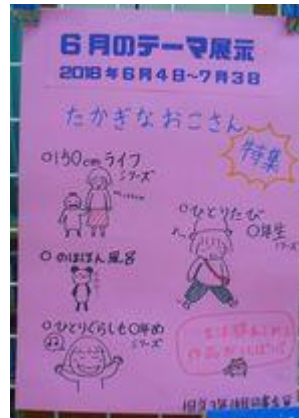 6月のテーマ展示
2018年6月4日~7月3日
たかぎなおこさん
特集
○150cmライフ
シリーズ
○ひとりたび
○年生
シリーズ
○のほほん風呂
○ひとりぐらしも○年め
シリーズ